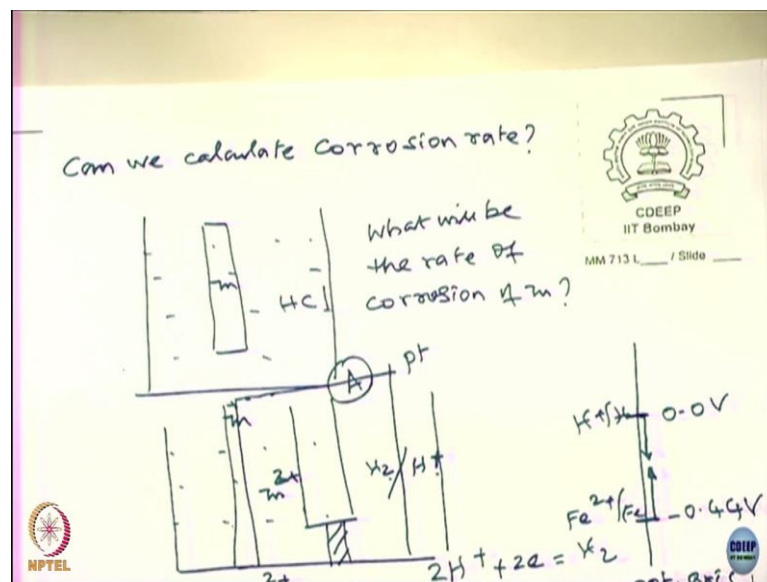 Can we calculate corrosion rate?
CDEEP
IIT Bombay
MM 713 L___ / Slide ___
What will be
the rate of
corrosion of Zn?
Zn
HCl
A
Pt
Zn
Zn2+
H2/H+
H+/H2 0.0V
Fe2+/Fe -0.44V
2H+ + 2e = H2
2+
NPTEL
CDEEP
IIT BOMBAY